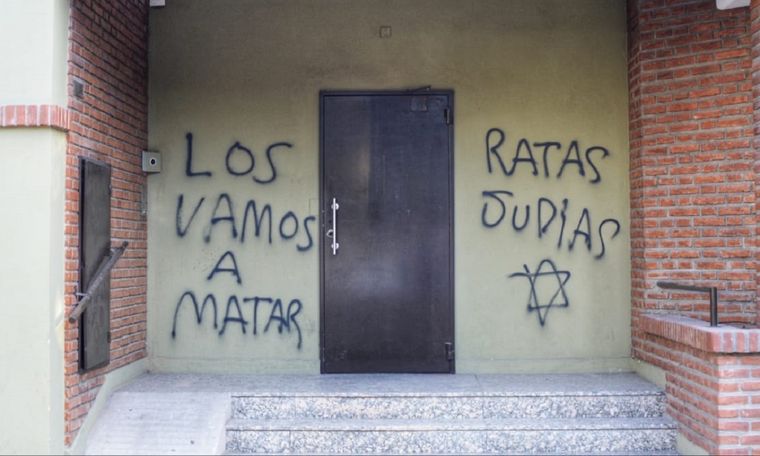 LOS
VAMOS
A
MATAR
RATAS
JUDIAS